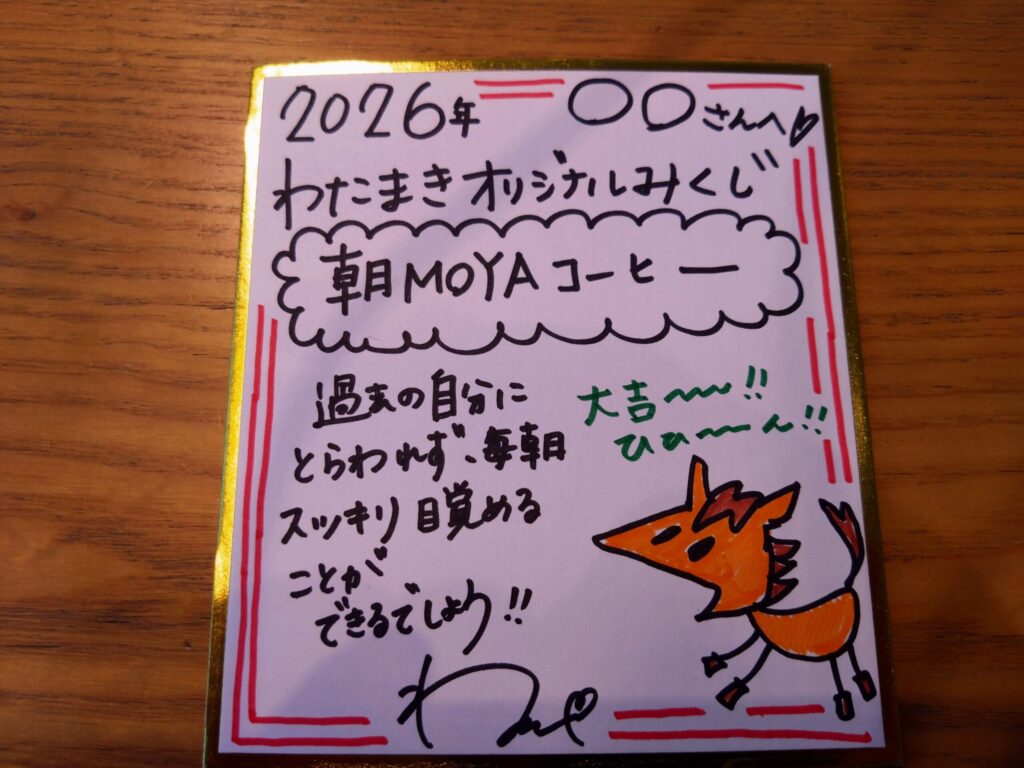 2026年 〇〇さんへ♡
わたまきオリジナルみくじ
朝MOYAコーヒー
過去の自分に
とらわれず、毎朝
スッキリ目覚める
ことが
できるでしょう!!
大吉〜〜!!
ひひ〜〜ん!!